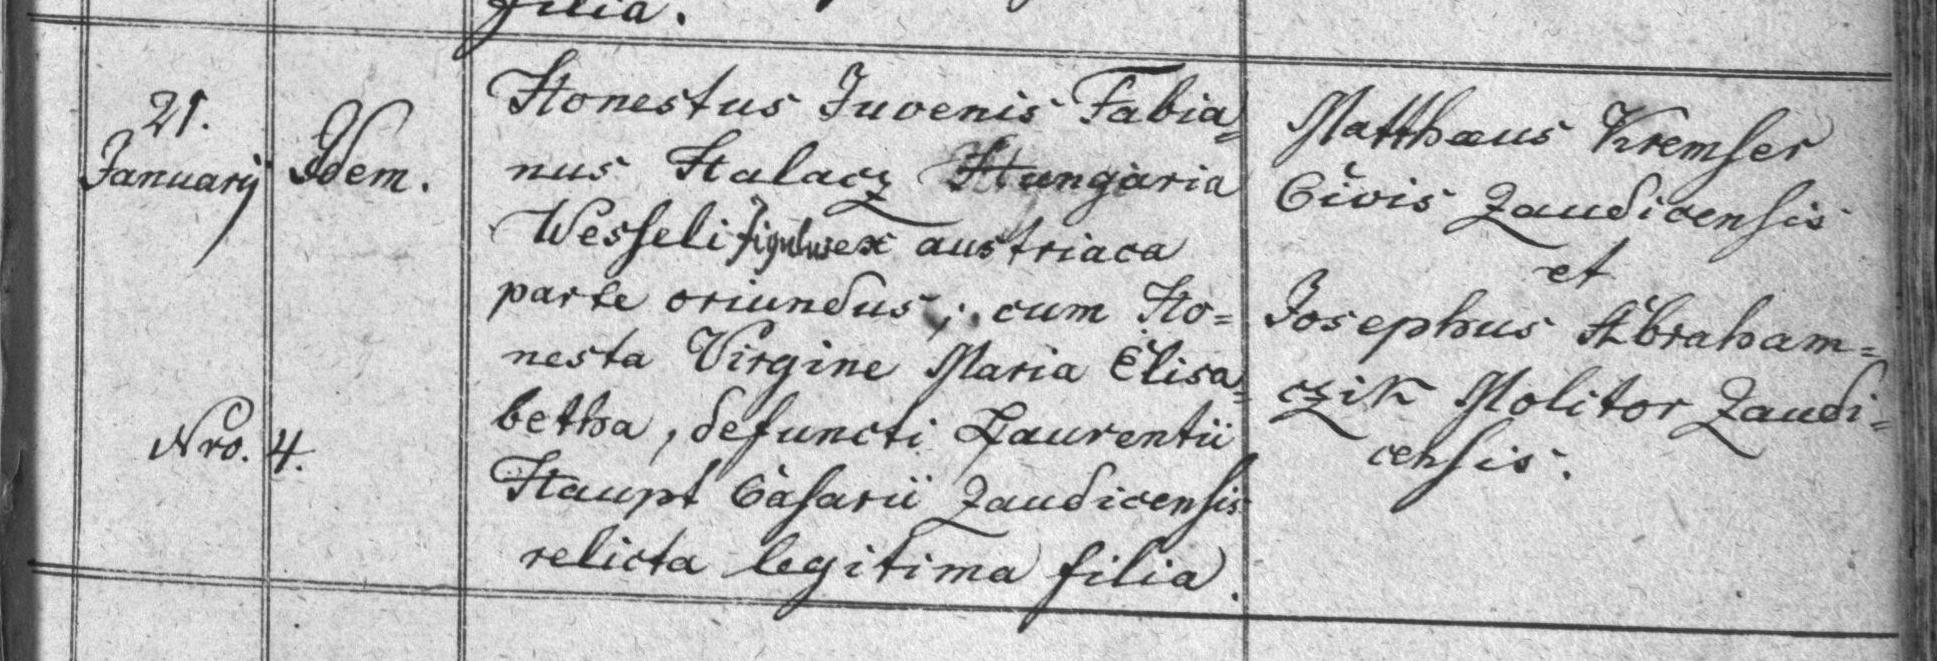 filia.
21.
Januarij
Idem.
Nro. 4.
Honestus Juvenis Fabia=
nus Halacz Hungaria
Wesseli austriaca
parte oriundus; cum Ho=
nesta Virgine Maria Elisa=
betha, defuncti Laurentii
Haupt Casarii Zaudicensis
relicta legitima filia.
Matthaeus Kremser
Civis Zaudicensis
et
Josephus Abraham=
czik Molitor Zaudi=
censis.